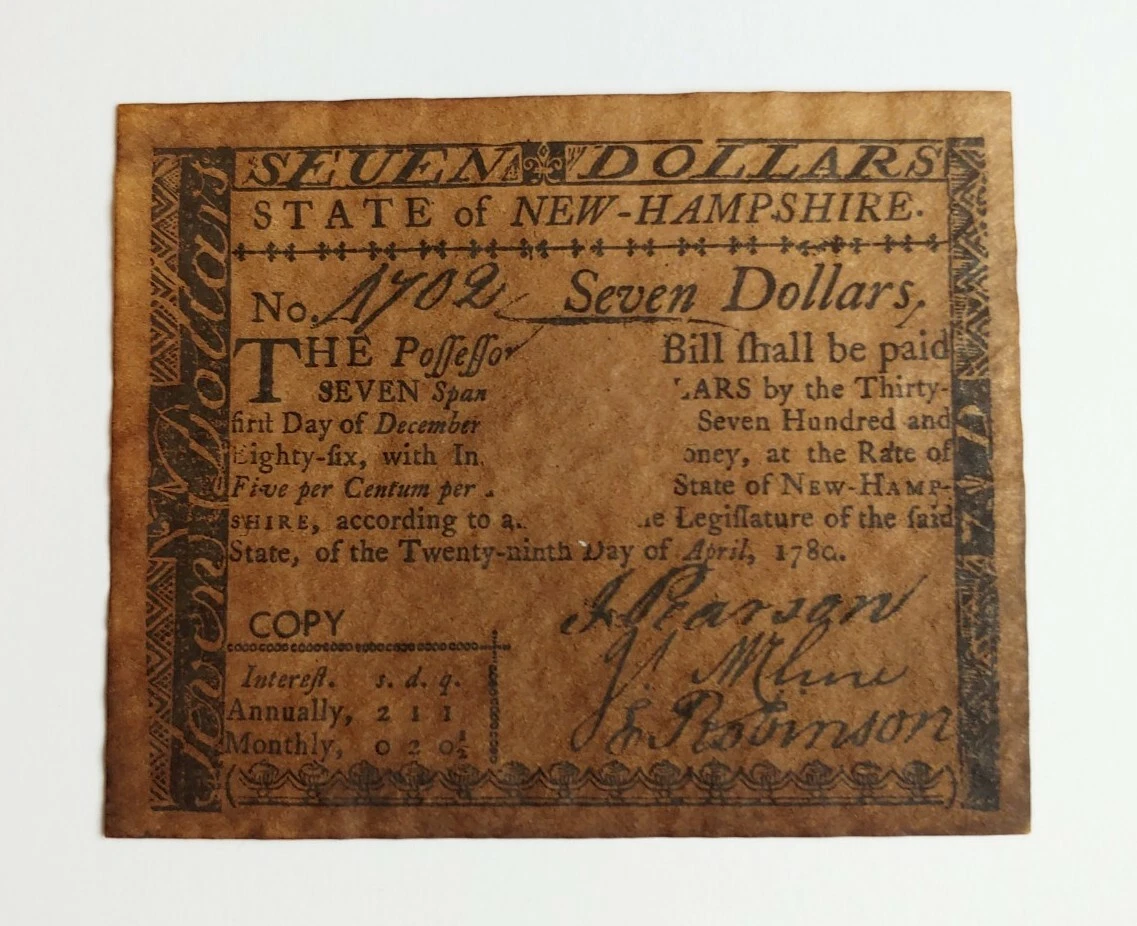 SEVEN DOLLARS
STATE of NEW-HAMPSHIRE.
No. 1702 Seven Dollars,
THE Poſſeſſor Bill ſhall be paid
SEVEN Span LARS by the Thirty-
firſt Day of December Seven Hundred and
Eighty-ſix, with In oney, at the Rate of
Five per Centum per State of NEW-HAMP-
SHIRE, according to a e Legiſlature of the ſaid
State, of the Twenty-ninth Day of April, 1780.
COPY
Intereſt. s. d. q.
Annually, 2 1 1
Monthly, 0 2 0½
J Pearson
J. McClure
E Robinson
Seven Dollars